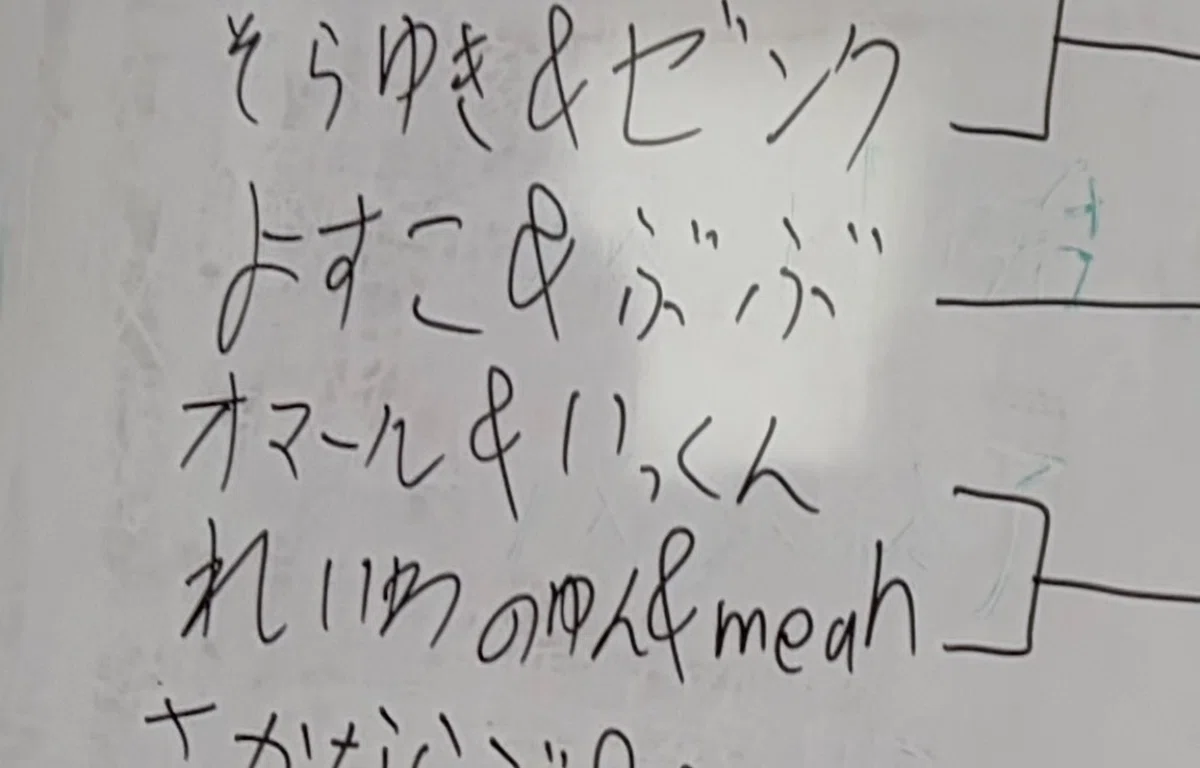 そらゆき&ゼンク
よすこ&ぶぶ
オマール&いっくん
れいわのゆん&meah